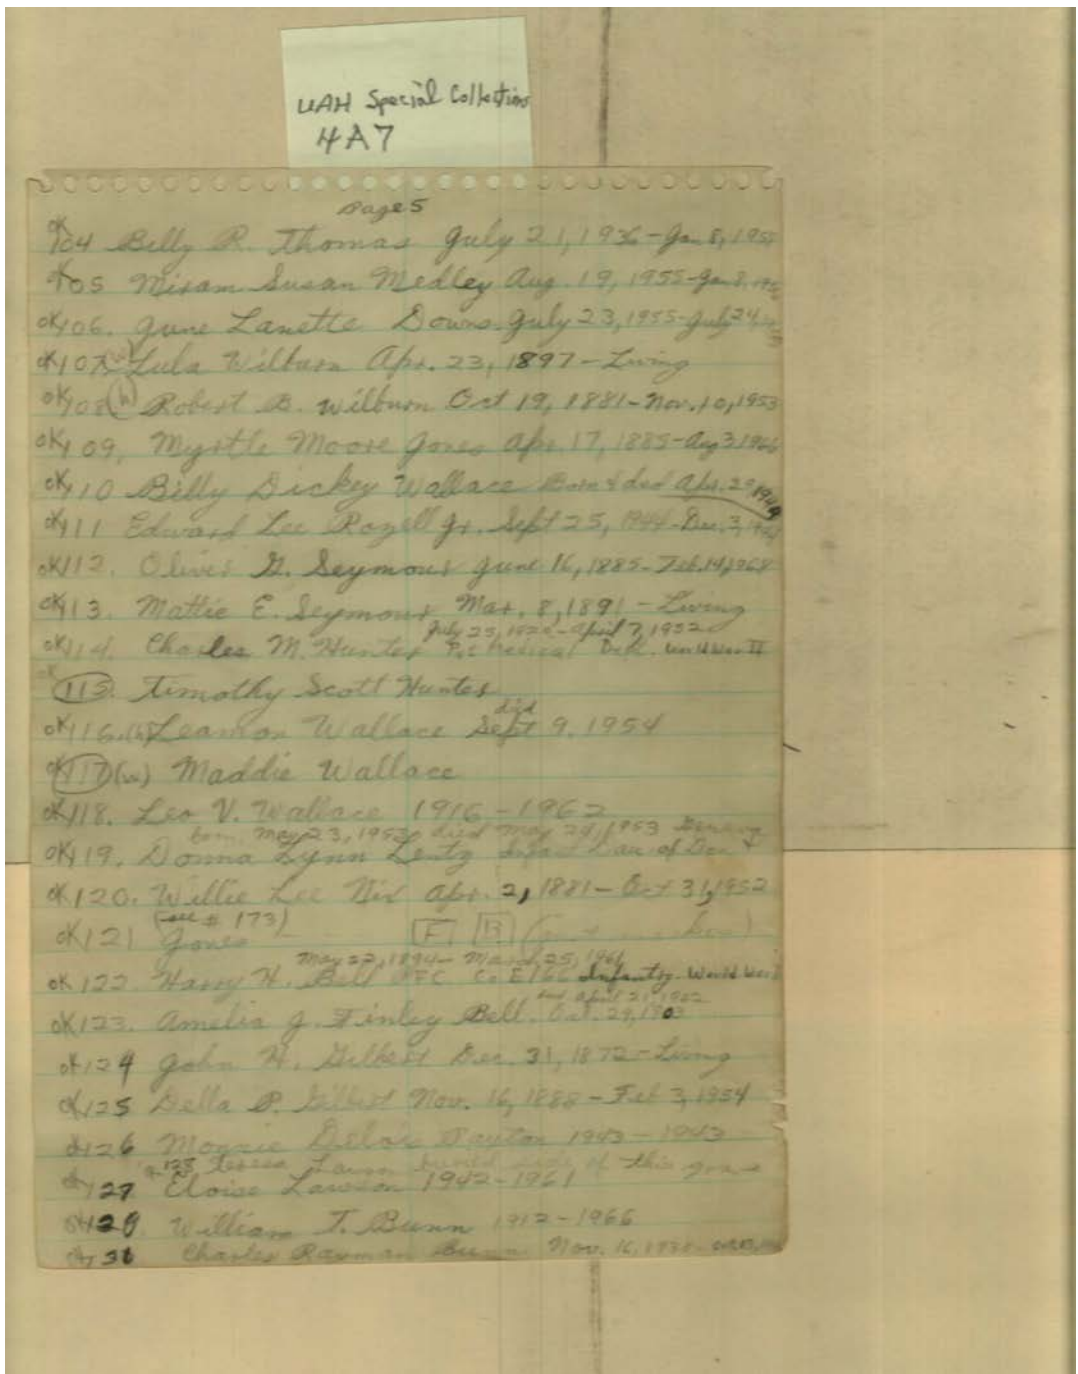 UAH Special Collections
4A7
Page 5
OK 104 Billy R. Thomas July 21, 1936 - Jan 8, 1955
OK 105 Miram Susan Medley Aug. 19, 1955 - Jan 8,
OK 106. June Lanette Downs. July 23, 1955 - July 24,
OK 107 (w) Lula Wilburn Apr. 23, 1897 - Living
OK 108 (h) Robert B. Wilburn Oct 19, 1881 - Nov. 10, 1953
OK 109. Myrtle Moore Jones Apr. 17, 1885 - Aug 3 1966
OK 110 Billy Dickey Wallace Born & died Apr. 29 1949
OK 111 Edward Lee Rozell Jr. Sept 25, 1944 - Dec. 3,
OK 112. Oliver G. Seymour June 16, 1885 - Feb. 14, 1968
OK 113. Mattie E. Seymour Mar. 8, 1891 - Living
July 25, - April 7, 1952
OK 114. Charles M. Hunter Pvt Medical Det. World War II
OK 115. Timothy Scott Hunter
died
OK 116. (h) Leamon Wallace Sept 9, 1954
OK 117 (w) Maddie Wallace
OK 118. Leo V. Wallace 1916 - 1962
born May 23, 1953 died May 24, 1953
OK 119. Donna Lynn Lentz Infant Dau. of &
OK 120. Willie Lee Nix Apr. 2, 1881 - Oct 31, 1952
(see # 173)
OK 121 Jones F B
May 22, 1894 - March 25, 1961
OK 122. Harry H. Bell PFC Co E 166 Infantry World War I
April 21,
OK 123. Amelia J. Finley Bell. Oct. 29, 1903
OK 124 John H. Gilbert Dec. 31, 1872 - Living
OK 125 Della P. Gilbert Nov. 16, 1888 - Feb 3, 1954
OK 126 1943 - 1943
128 Teresa Lawson buried side of this grave
OK 127 Eloise Lawson 1942 - 1961
OK 129. William T. Bunn 1912 - 1966
OK 130 Charles Rayman Bunn Nov. 16,